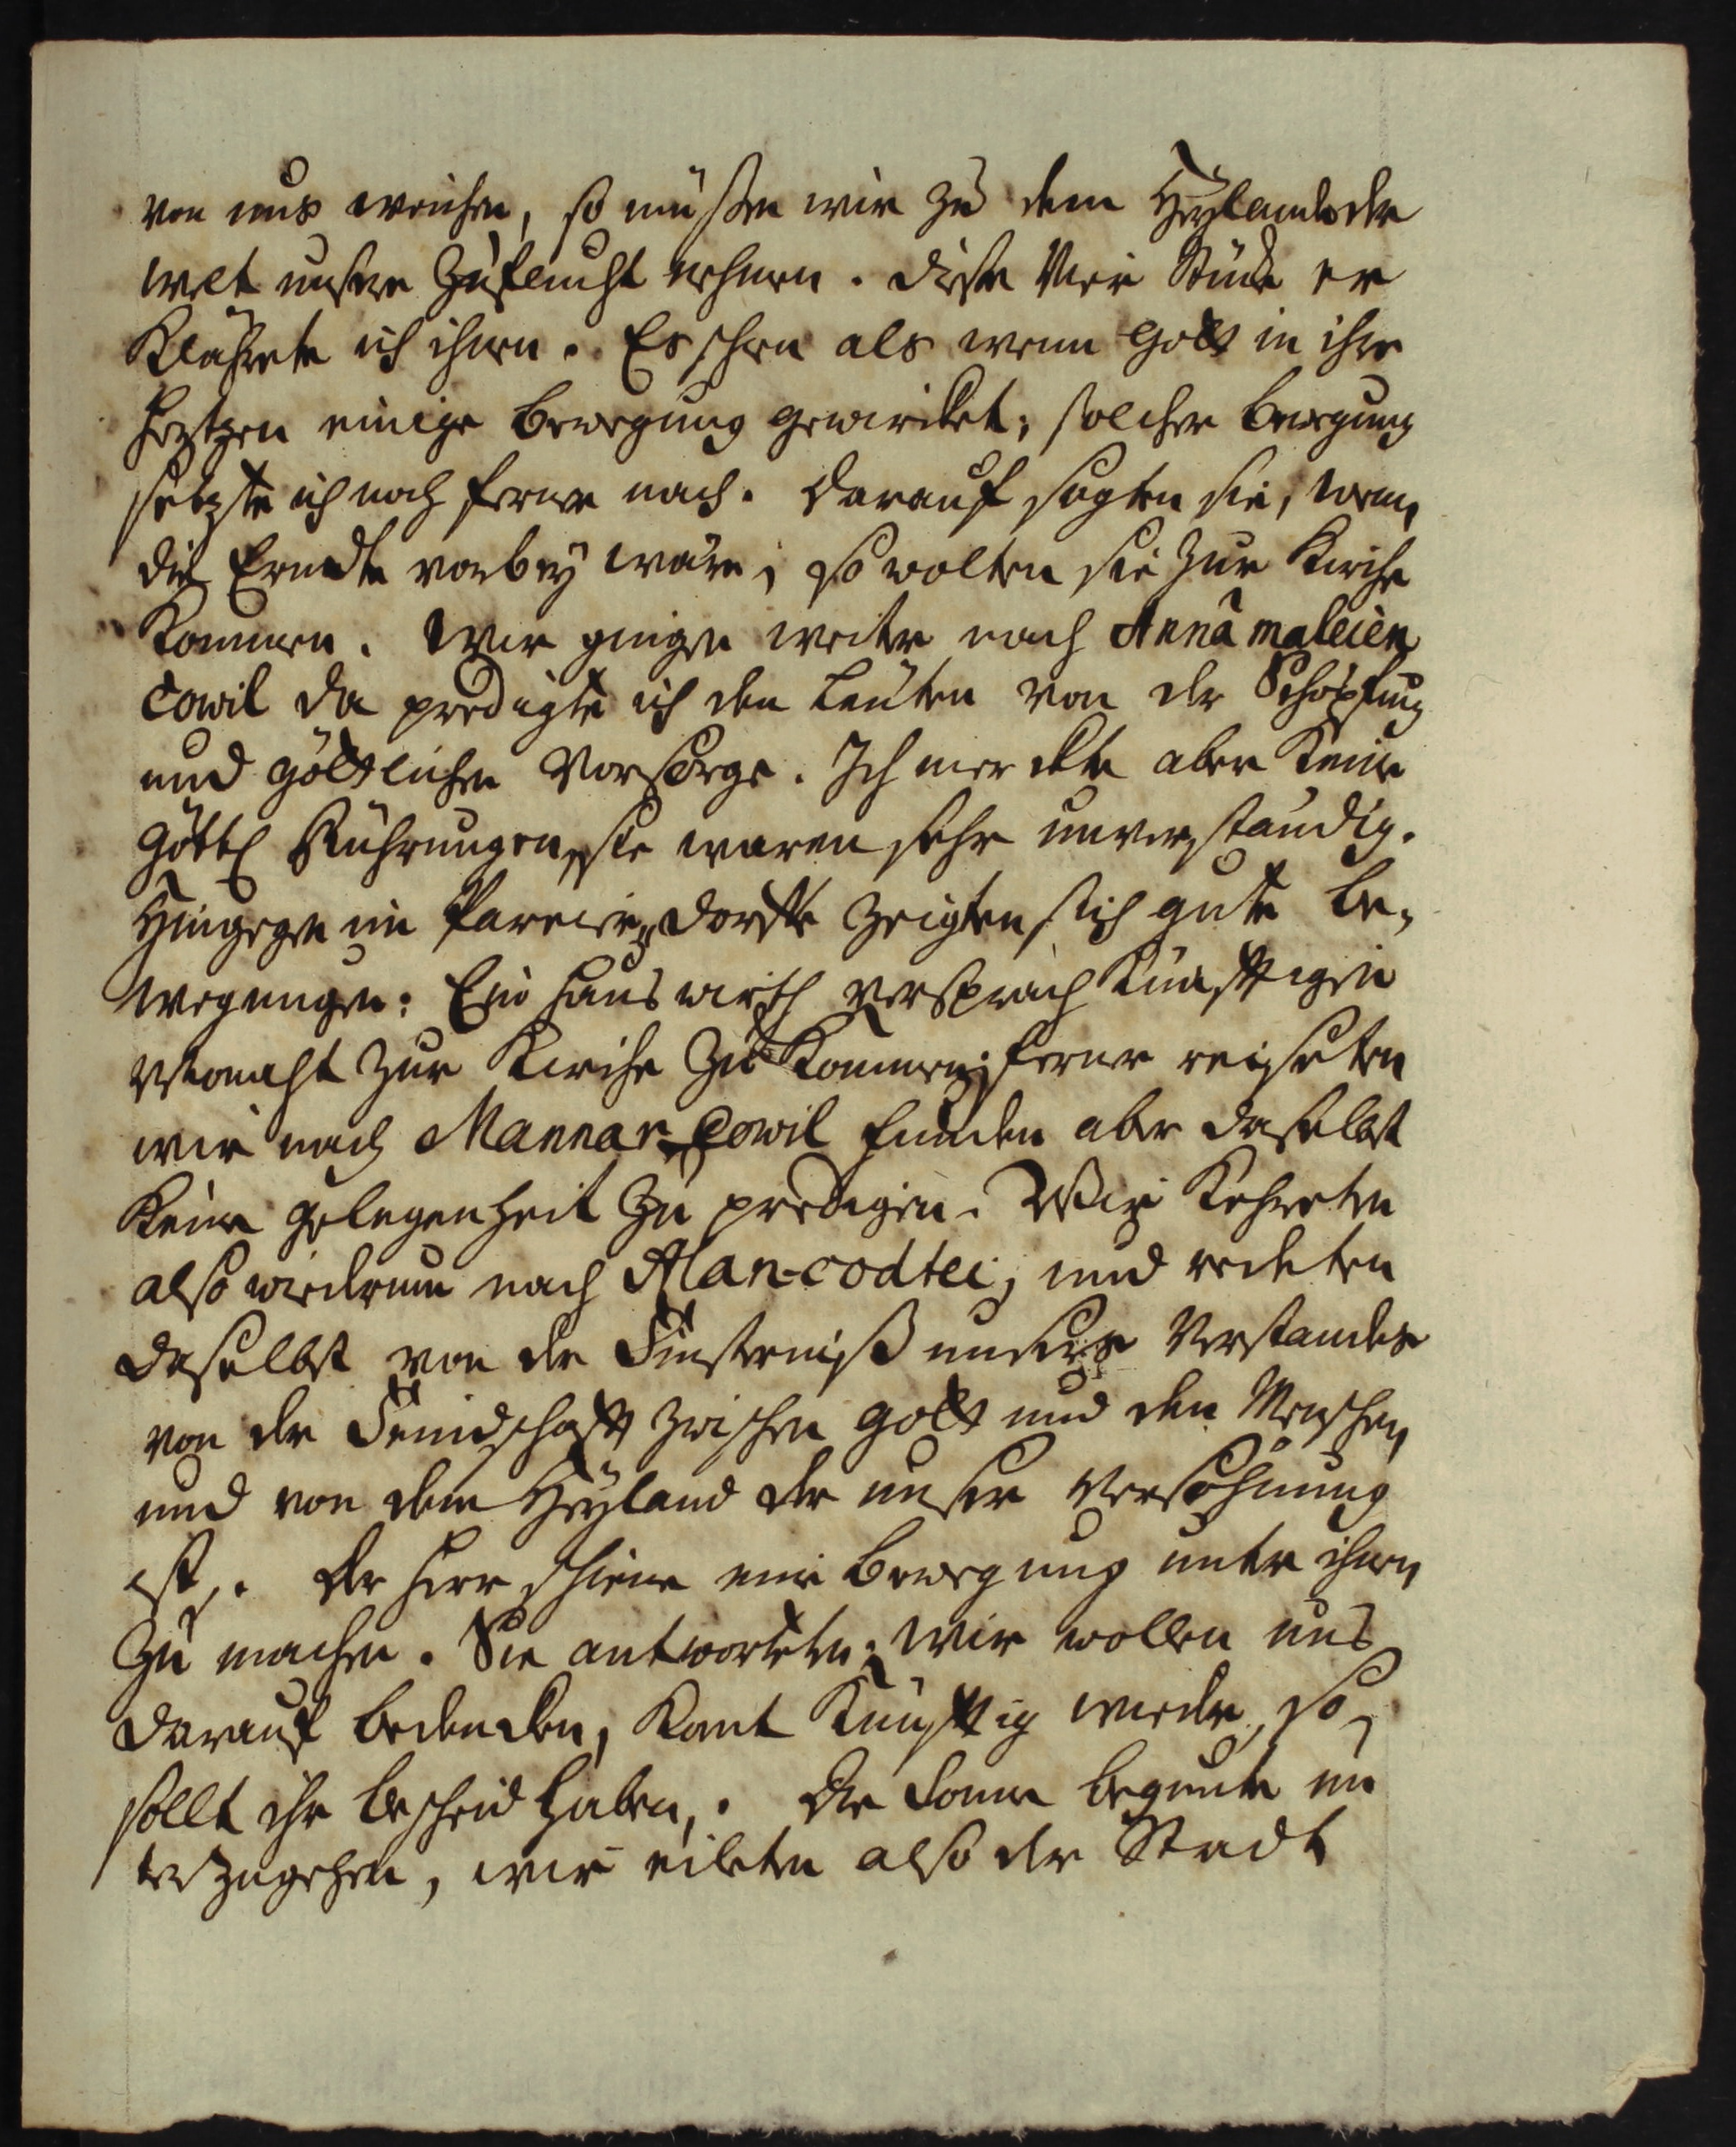 von uns weichen, so müßen wir zu dem Heylande der
welt unsere Zuflucht nehmen. diese Vier Stücke er
Klährete ich ihnen. Es schien als wenn Gott in ihre
Hertzen einige bewegung gewircket; solcher bewegung
setzte ich noch ferner nach. darauf sagten sie, wenn
die Erndte vorbey wäre, so wolten sie zur Kirche
Kommen. Wir gingen weiter nach Annâmaleien
Cowil da predigte ich den Leuten von der Schöpfung
und göttlichen Vorsorge. Ich merckte aber Keine
Göttl Rührungen, sie waren sehr unverständig.
Hingegen im Pareier dorffe zeigten sich gute be-
wegungen: Ein Hauswirth versprach Künfftigen
zur Kirche zu Kommen; ferner reiseten
wir nach Mannar Cowil funden aber daselbst
Keine gelegenheit zu predigen. Wir Kehreten
also wiederum nach Alan-codtei, und redeten
daselbst von der Finsterniß unsers Verstandes
von der Feindschafft zwischen Gott und den Menschen
und von dem Heyland der unser Versöhnung
ist. der Herr schiene eine bewegung unter ihnen
zu machen. Sie antworteten: Wir wollen uns
darauf bedencken, Komt Künfftig wieder, so
sollt ihr bescheid haben. die Sonne begunte un
ter zugehen, wir eileten also der Stadt